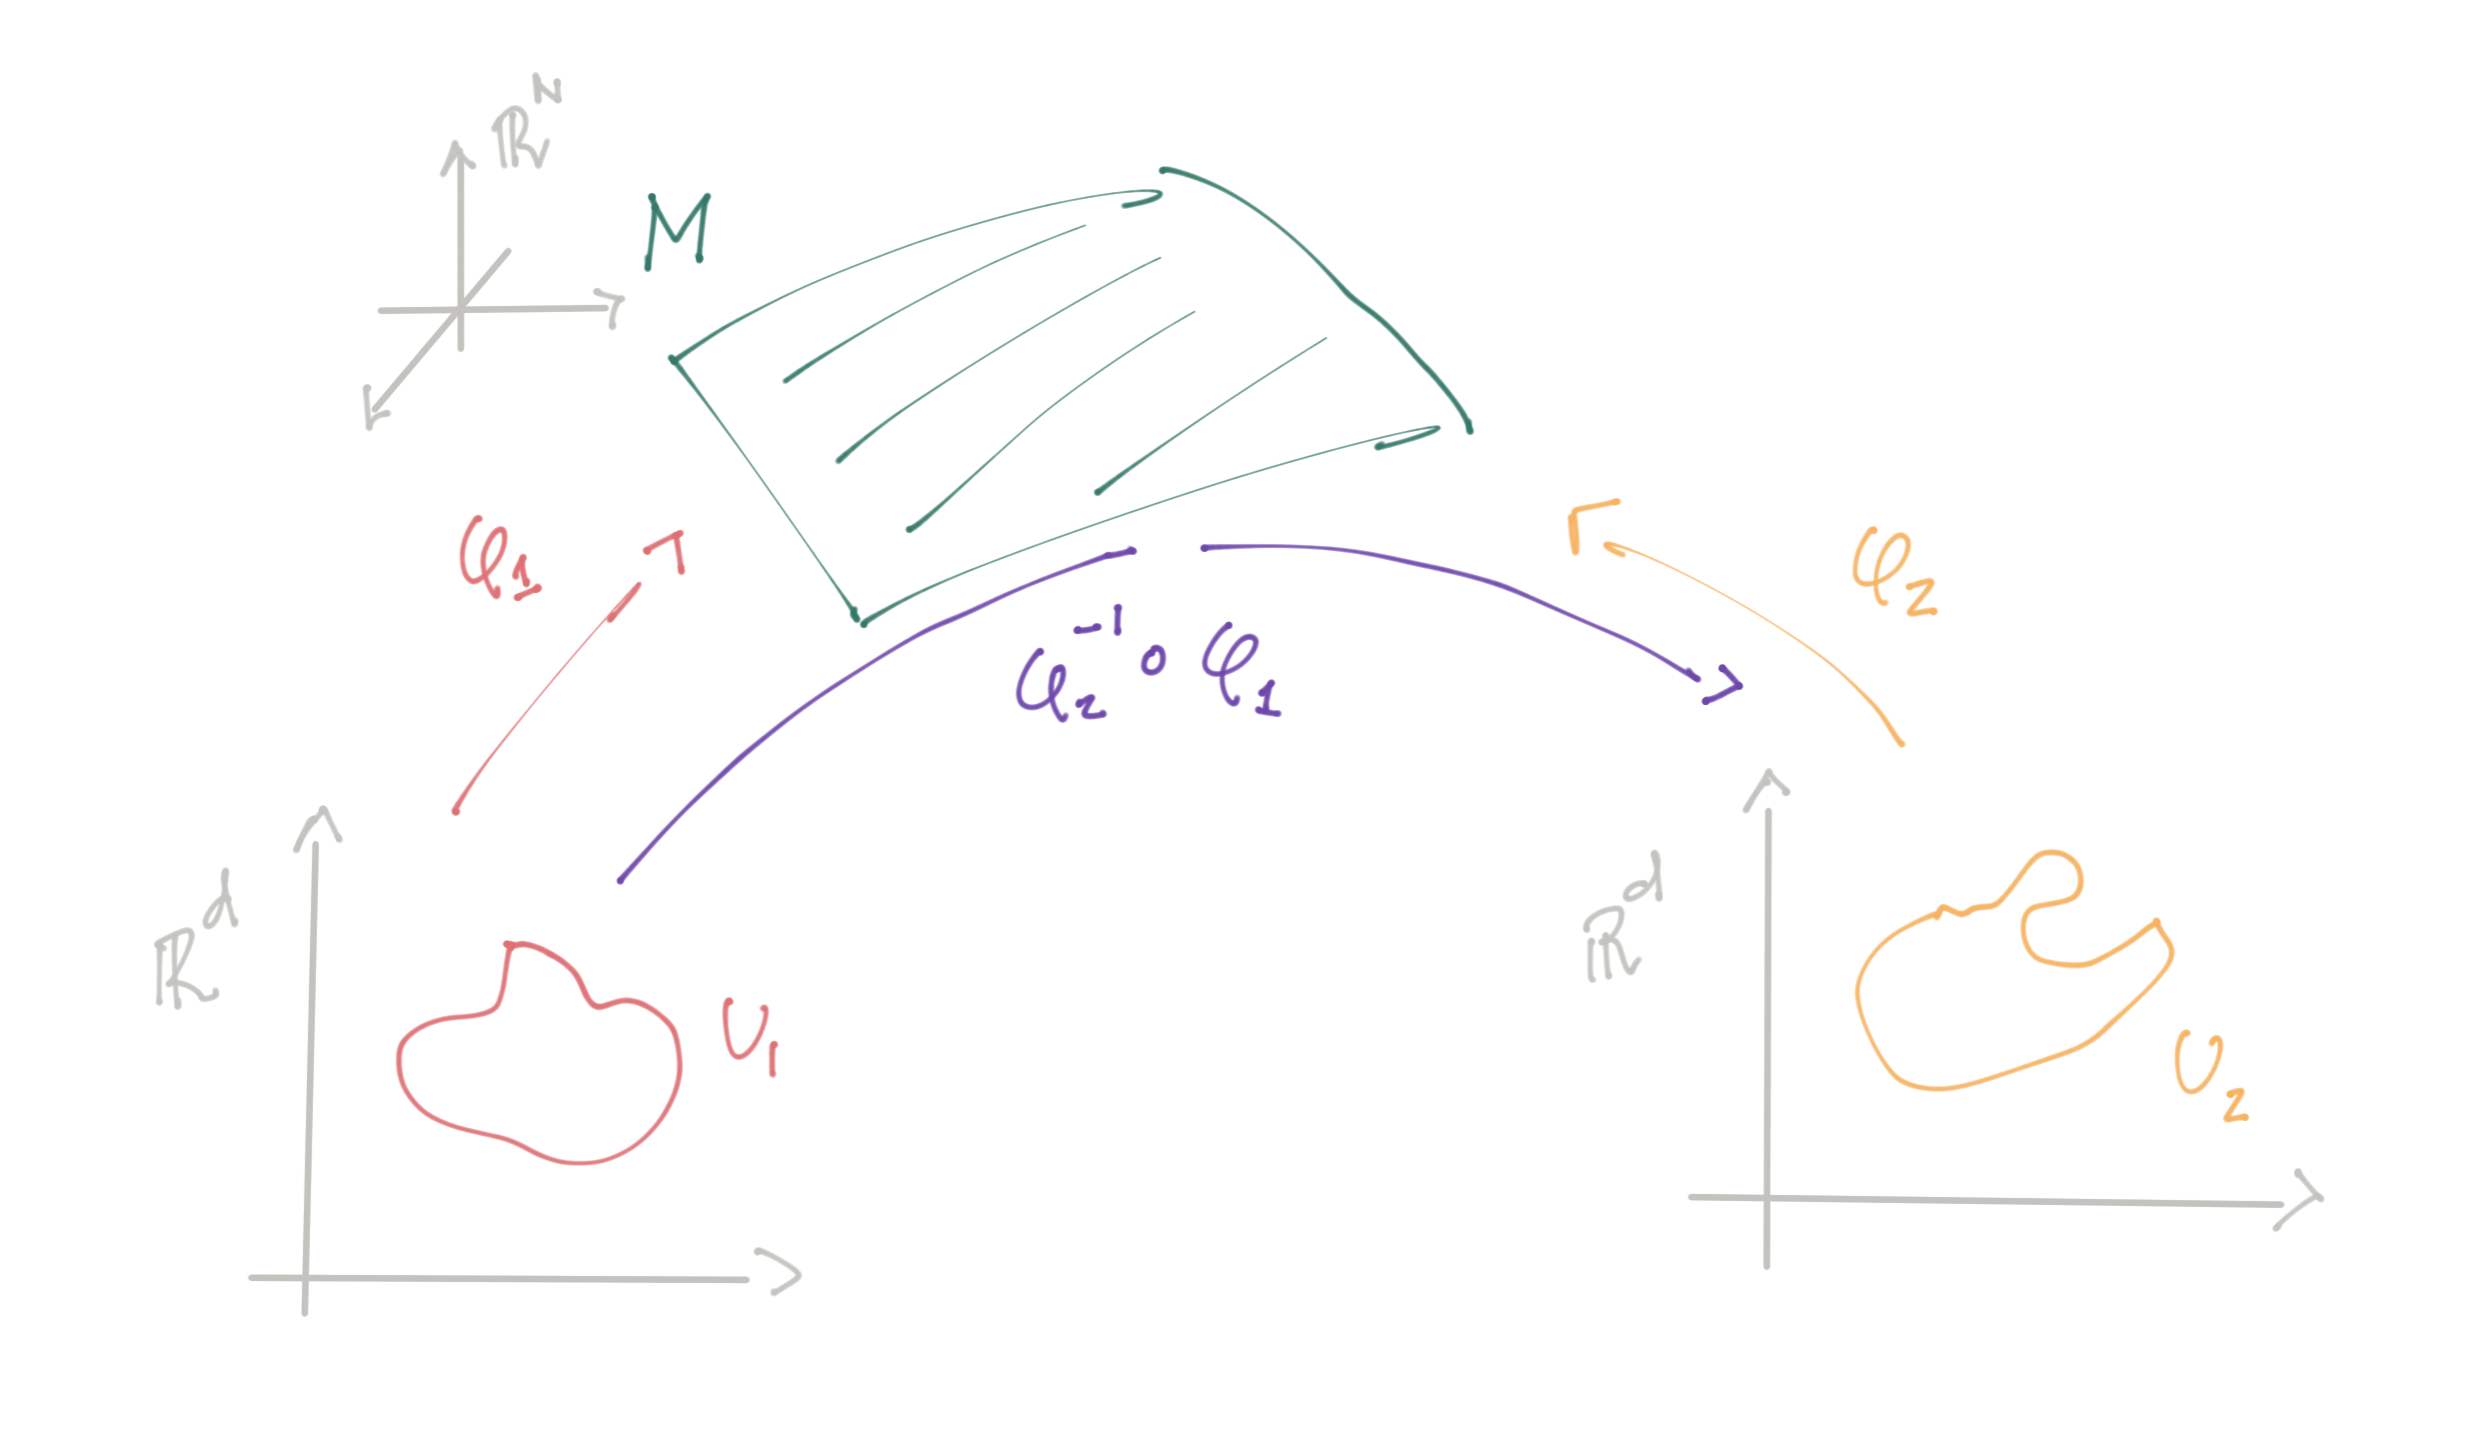 ℝᴺ
M
φ₁
φ₂
φ₂⁻¹ ∘ φ₁
ℝᵈ
ℝᵈ
U₁
U₂